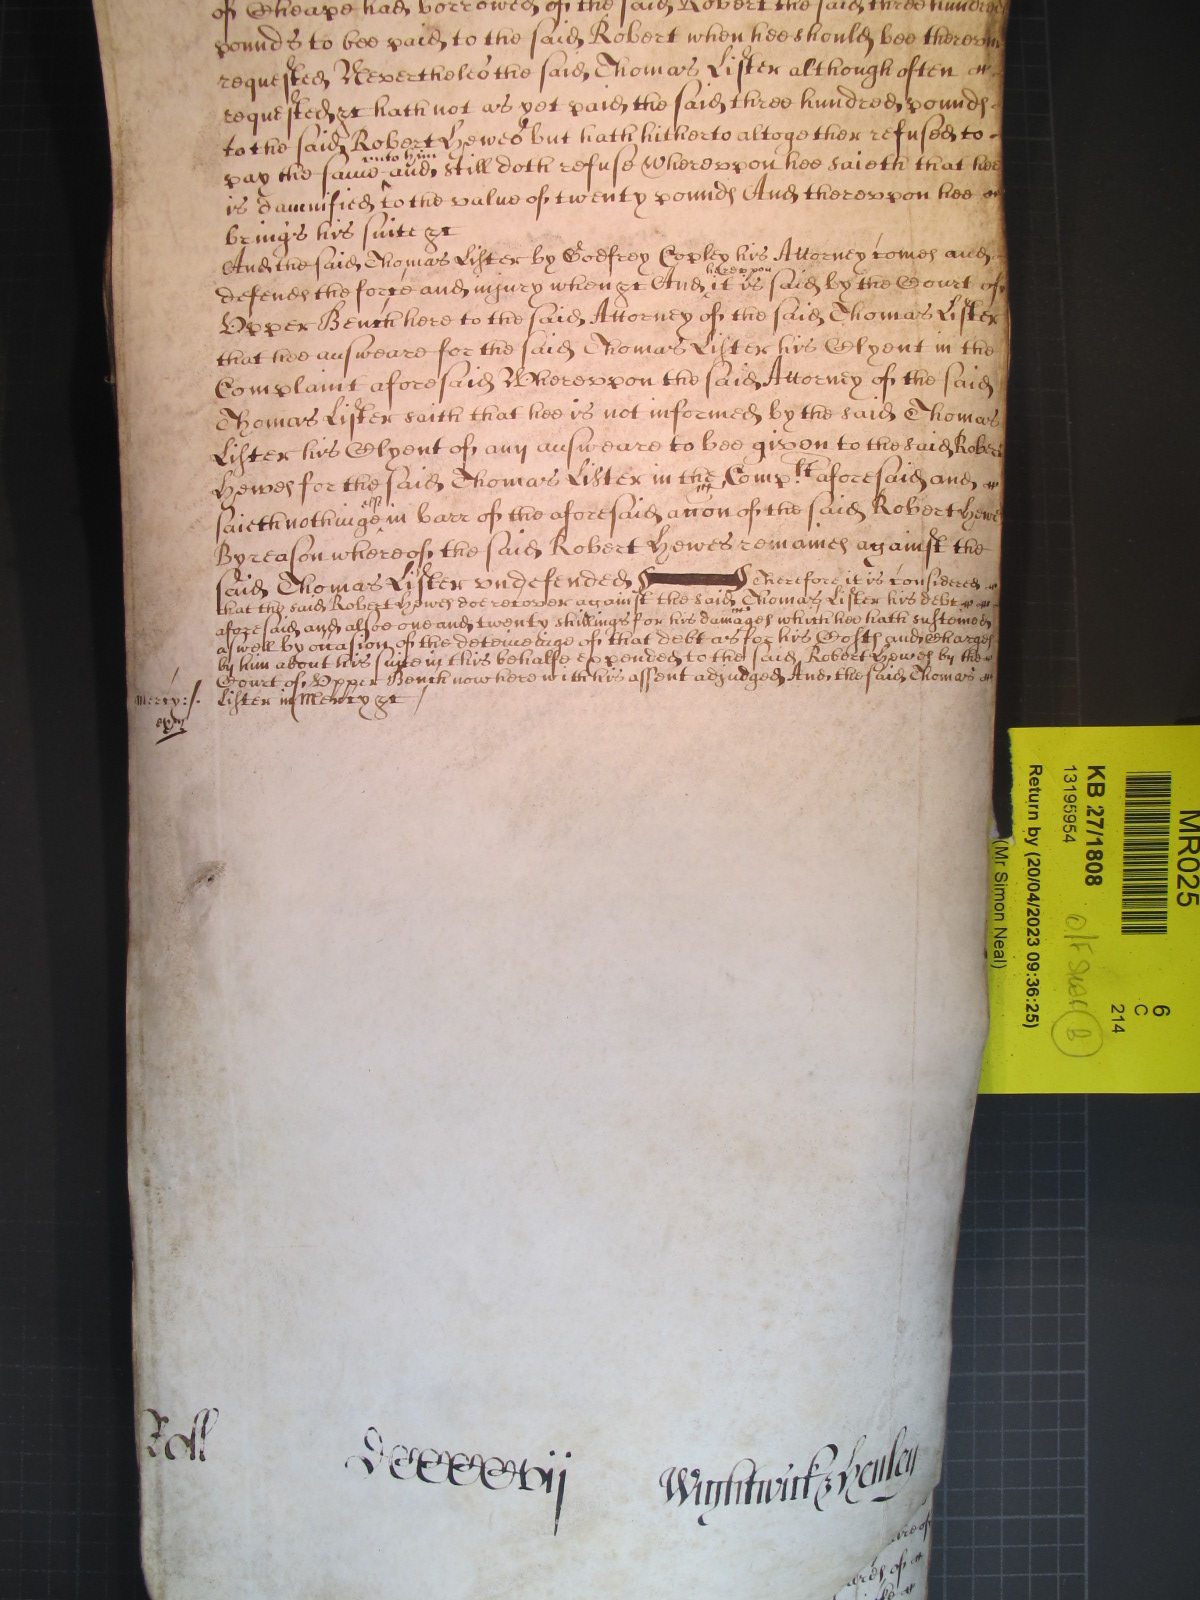 of Cheape had borrowed of the said Robert the said three hundred
pounds to bee paid to the said Robert when hee should bee therevnto
requested Neverthelesse the said Thomas Lister although often
requested &c hath not as yet paid the said three hundred pounds
to the said Robert Hewes but hath hitherto altogether refused to
pay the same vnto him and still doth refuse Wherevppon hee saieth that hee
is damnified to the value of twenty pounds And therevppon hee
brings his suite &c
And the said Thomas Lister by Godfrey Copley his Attorney comes and
defends the force and injury when &c And herevppon it is said by the Court of
Vpper Bench here to the said Attorney of the said Thomas Lister
that hee answeare for the said Thomas Lister his Clyent in the
Complaint aforesaid Wherevppon the said Attorney of the said
Thomas Lister saith that hee is not informed by the said Thomas
Lister his Clyent of any answeare to bee given to the said Robert
Hewes for the said Thomas Lister in the Complt aforesaid and
saieth nothinge else in barr of the aforesaid accon of the said Robert Hewes
By reason whereof the said Robert Hewes remaines against the
said Thomas Lister vndefended Therefore it is considered
that the said Robert Hewes doe recover against the said Thomas Lister his debt
aforesaid and alsoe one and twenty shillings for his damages which hee hath susteined
aswell by occasion of the deteineinge of that debt as for his Costs and Charges
by him about his suite in this behalfe expended to the said Robert Hewes by the
Court of Vpper Bench now here with his assent adjudged And the said Thomas
mercy: Lister in Mercy &c
Roll DCCCCvij Wightwick & Henley
MR025
KB 27/1808
13195954
Return by (20/04/2023 09:36:25)
(Mr Simon Neal)
6
C
214
B